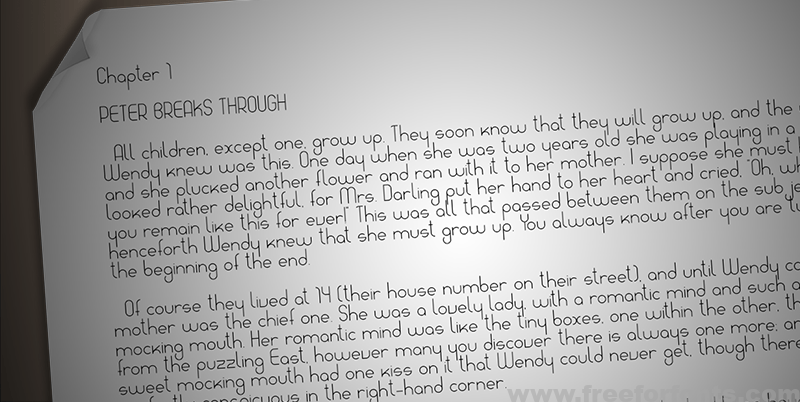 Chapter 1
PETER BREAKS THROUGH
All children, except one, grow up. They soon know that they will grow up, and the
Wendy knew was this. One day when she was two years old she was playing in a
and she plucked another flower and ran with it to her mother. I suppose she must
looked rather delightful, for Mrs. Darling put her hand to her heart and cried, 'Oh,
you remain like this for ever!' This was all that passed between them on the sub
henceforth Wendy knew that she must grow up. You always know after you are
the beginning of the end.
Of course they lived at 14 (their house number on their street), and until Wendy
mother was the chief one. She was a lovely lady, with a romantic mind and such a
mocking mouth. Her romantic mind was like the tiny boxes, one within the other,
from the puzzling East, however many you discover there is always one more; and
sweet mocking mouth had one kiss on it that Wendy could never get, though there
in the right-hand corner.